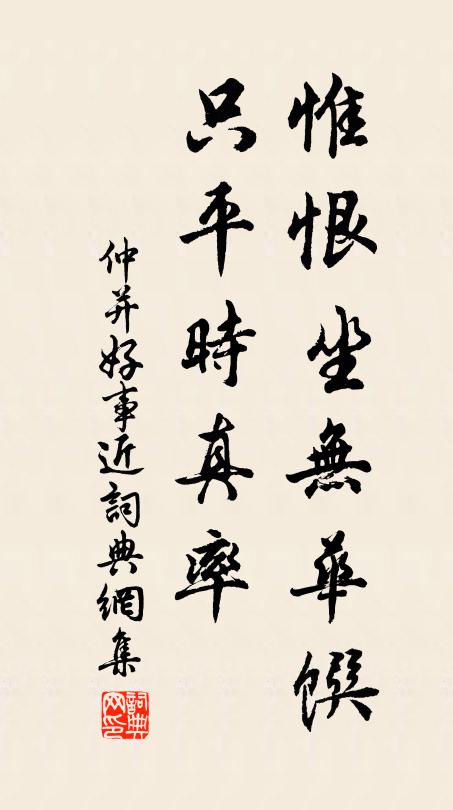 惟恨坐無華饌
只平時真率
仲并好事近詞典網集
詞典网印